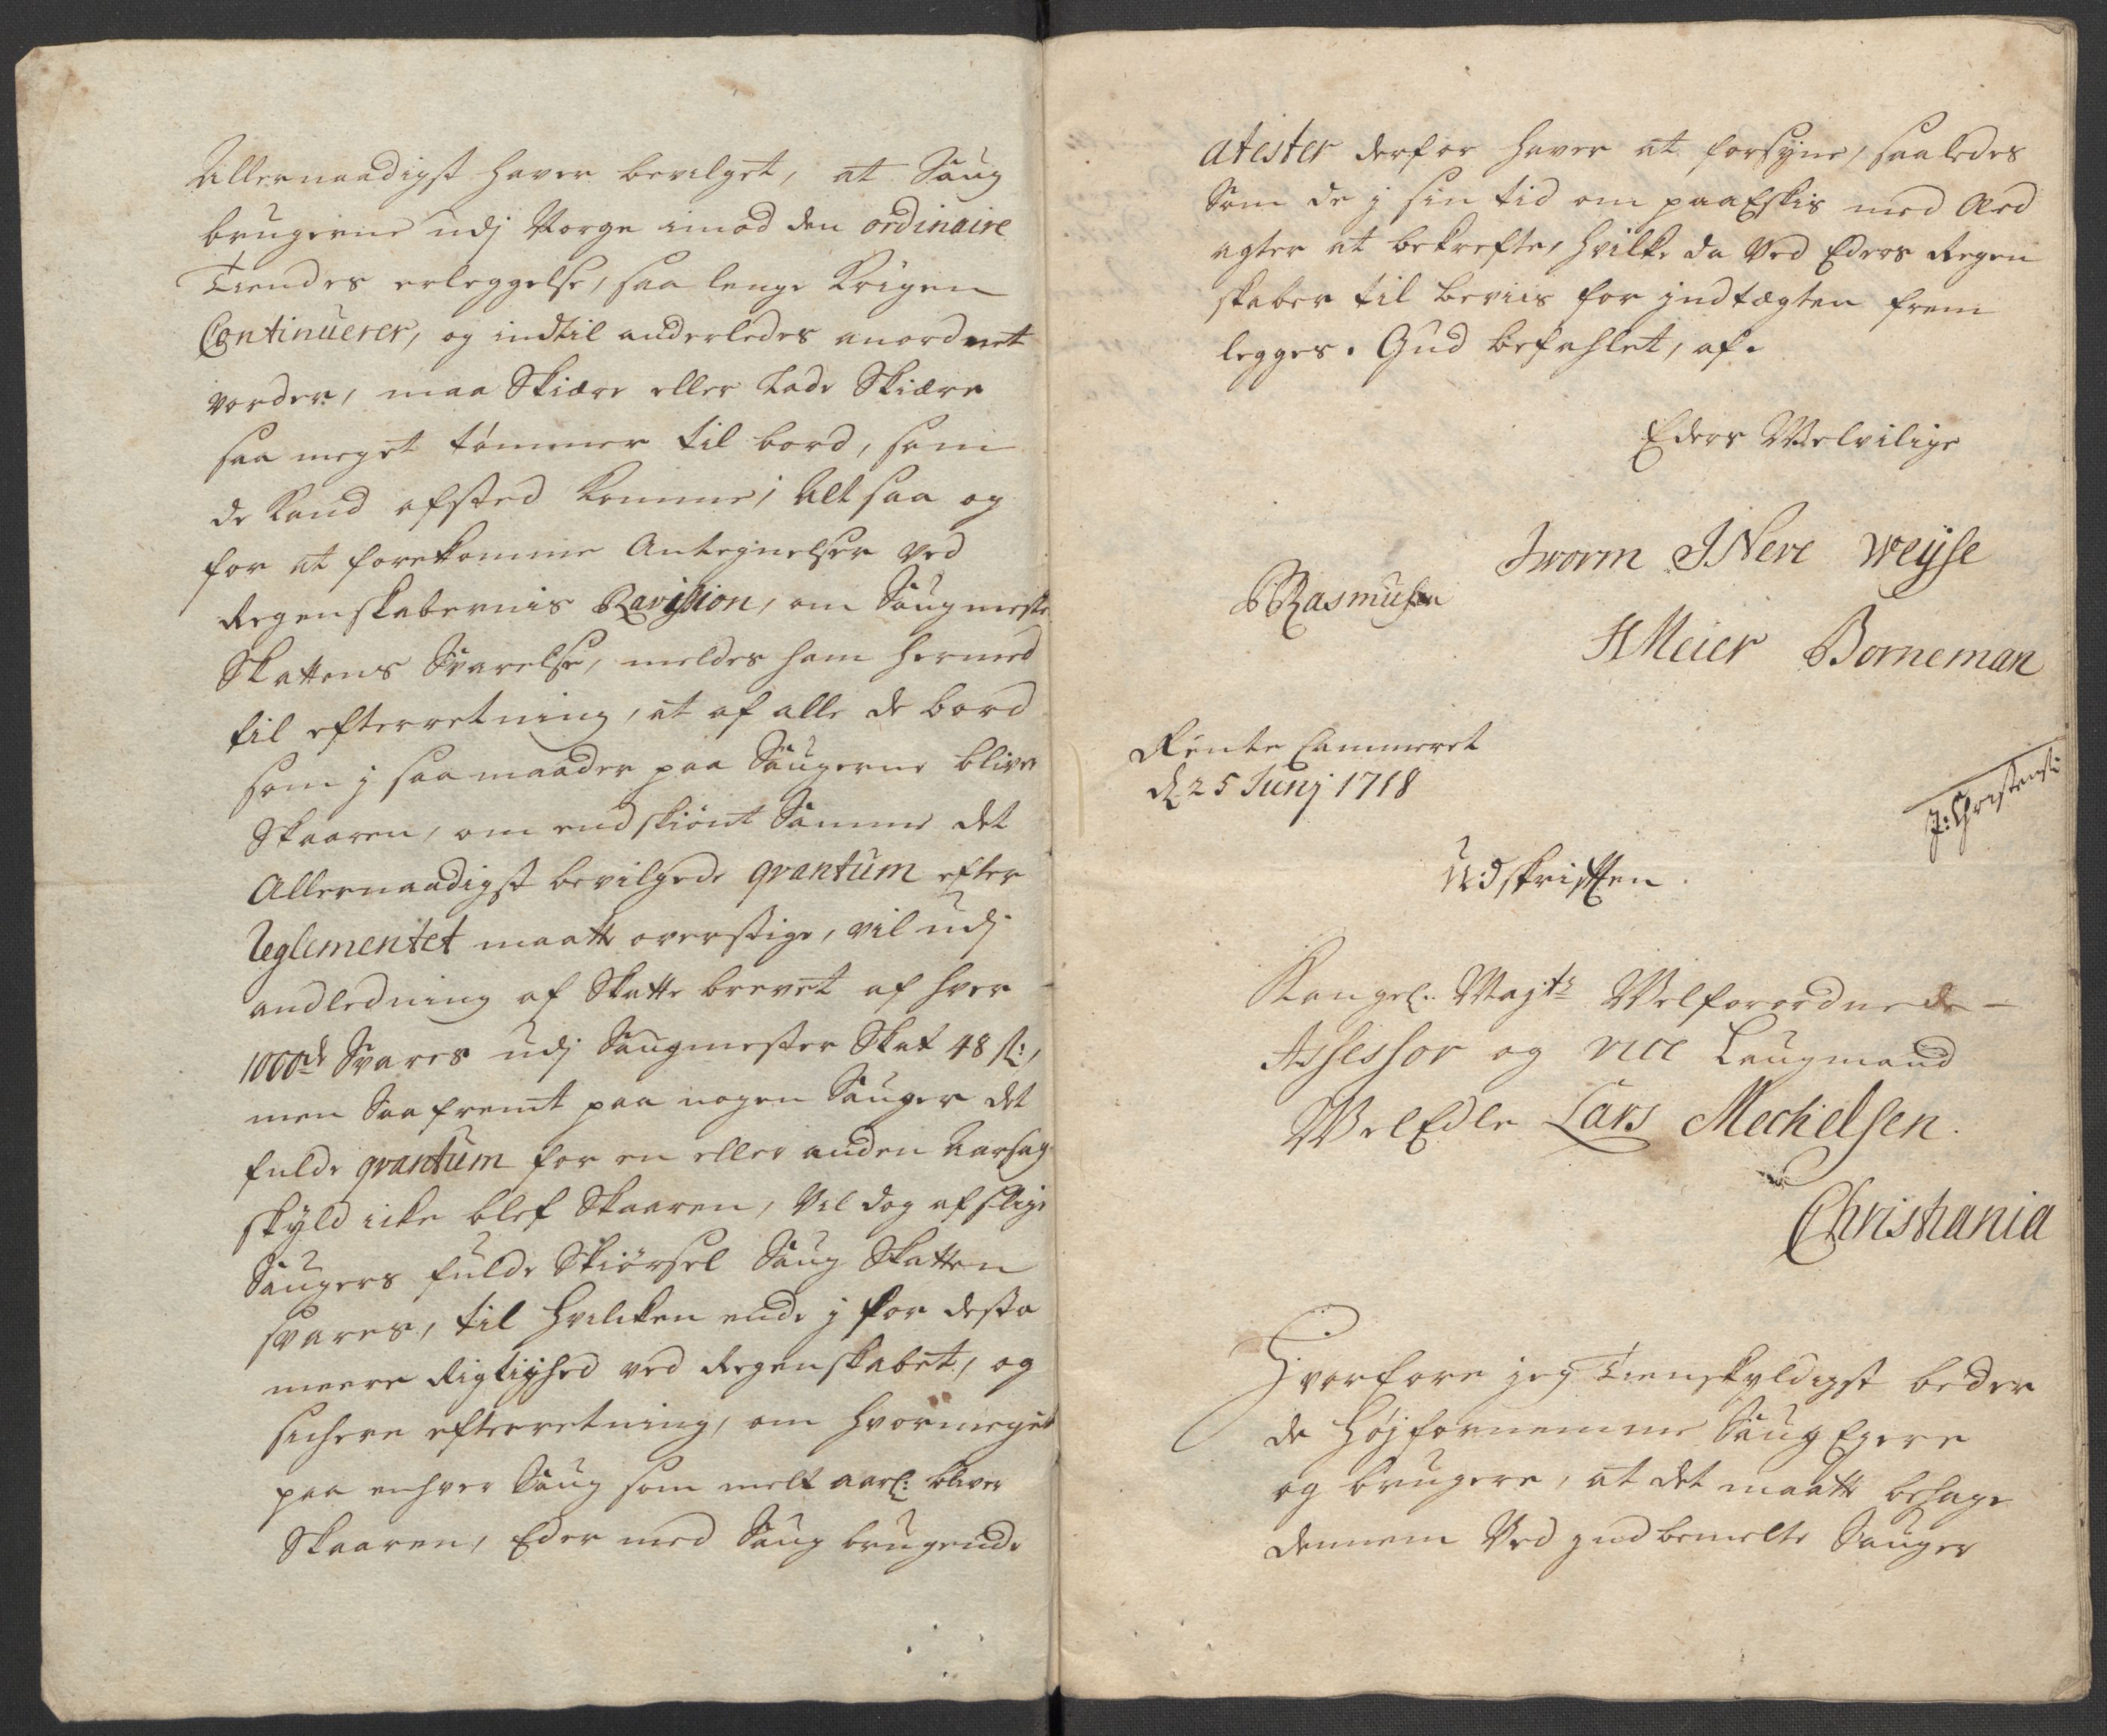 Allernaadigst haver bevilget, at Saug
brugerne udj Norge imod den ordinaire
Tiendes erleggelse, saa lenge Krigen
Continuerer, og indtil anderledes anordnet
vorder, maa Skiære eller Lade Skiære
saa meget tømmer til bord, som
de Kand afsted komme; Alt saa og
for at forekomme Antegnelser ved
Regenskabernis Ravision, om Saugmester
Skattens Svarelse, meldes ham hermed
til efterretning, at af alle de bord
som j saa maader paa Saugerne bliver
Skaaren, om endskiønt Samme det
Allernaadigst bevilgede qvantum efter
Reglementet maatte overstige, vil udj
andledning af Skatte brevet af hver
1000de Svares udj Saugmester Skat 48 s:,
men Saafremt paa nogen Sauger det
fulde qvantum for en eller anden Aarsag
skyld icke blef Skaaren, Vil dog af slige
Saugers fulde Skiørsel Saug Skatten
svares, til hvilcken ende j for desto
meere Rigtighed ved Regenskabet, og
sichere efterretning, om hvormeget
paa enhver Saug som melt aarl: bliver
Skaaren, Eder med Saug brugernde
atester derfor haver at forsyne, saaledes
Som de j sin tid om paaEskis med Aed
agter at bekrefte, hvilke da Ved Eders Regen
skaber til beviis for jndtægten frem
legges. Gud befahlet, af.
Eders Welvilige
Jworm JNere Weyse
BRasmusen
HMeier Borneman
Rente Cammeret
d. 25 Junj 1718
J: Christens:
Udskriften.
Kongel. Mayts Welforordnede
Assessor og vice Laugmand
WelEdle Lars Mechelsen.
Christiania
Hvorfore jeg Tienskyldigst beder
de Højfornemme Saug Egere
og brugere, at det maatte behage
dennem Ved jndbemelte Sauger